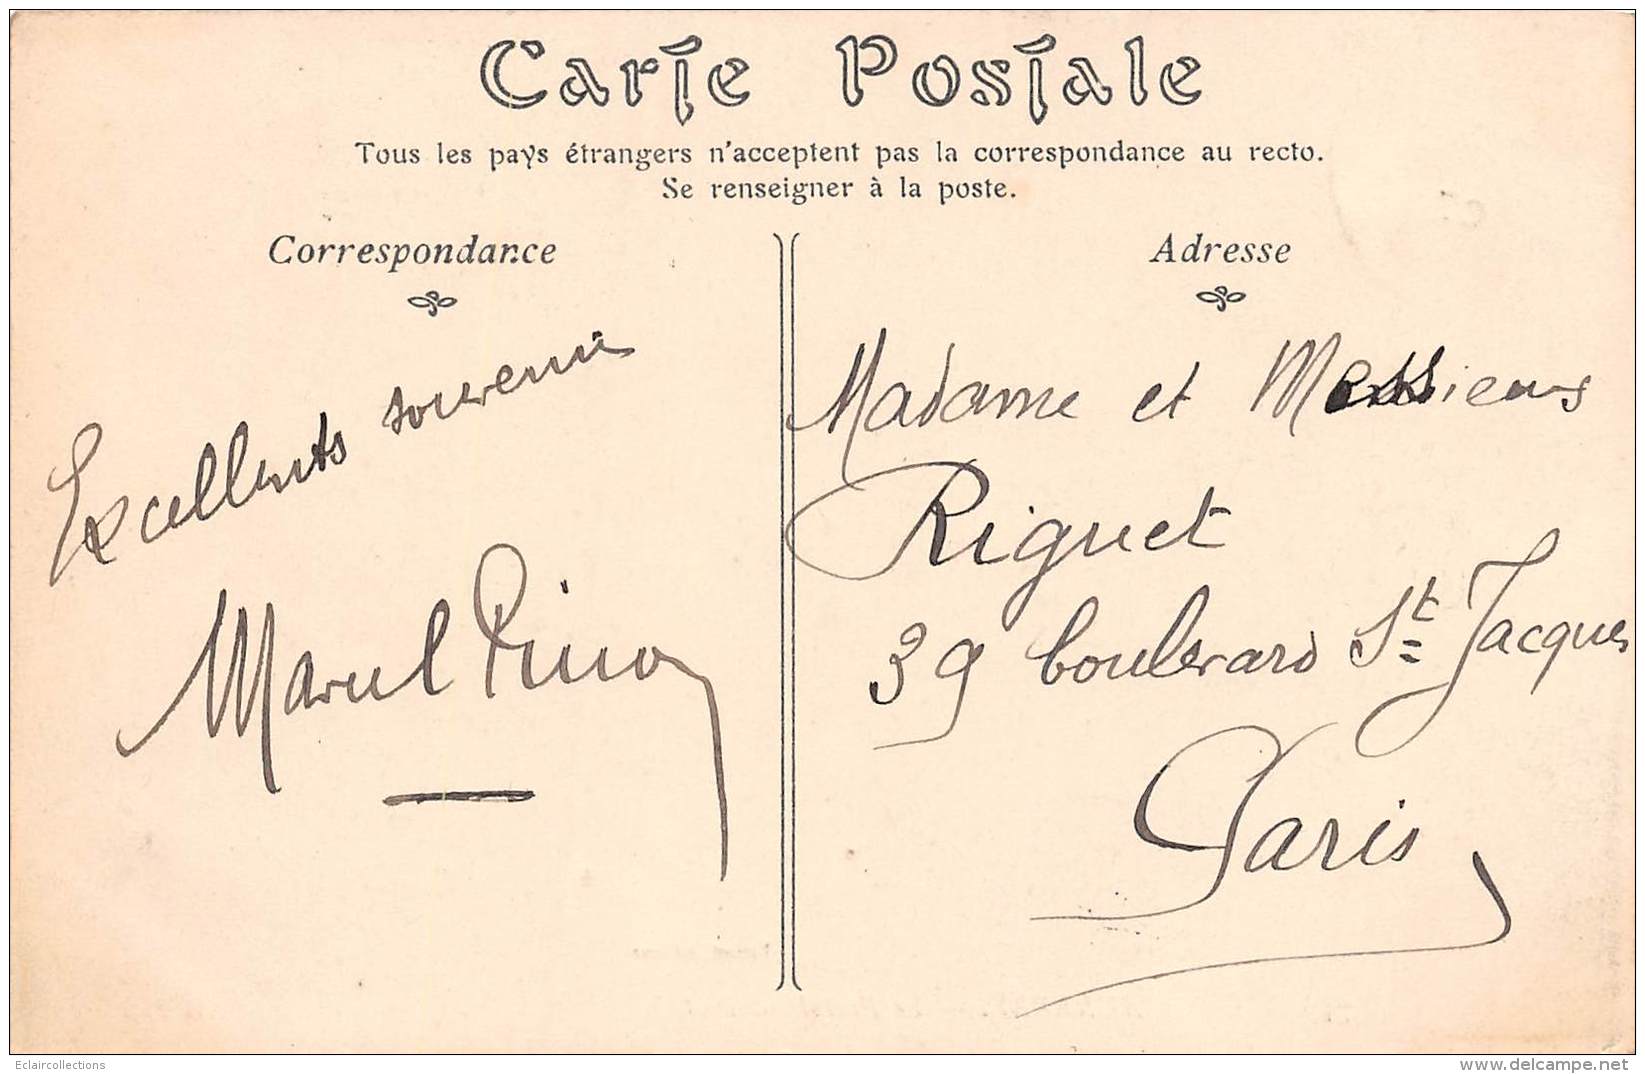 Carte Postale
Tous les pays étrangers n'acceptent pas la correspondance au recto.
Se renseigner à la poste.
Correspondance
Excellents souvenirs
Marcel
Adresse
Madame et Messieurs
Riguet
39 boulevard St Jacques
Paris
Eclaircollections
www.delcampe.net